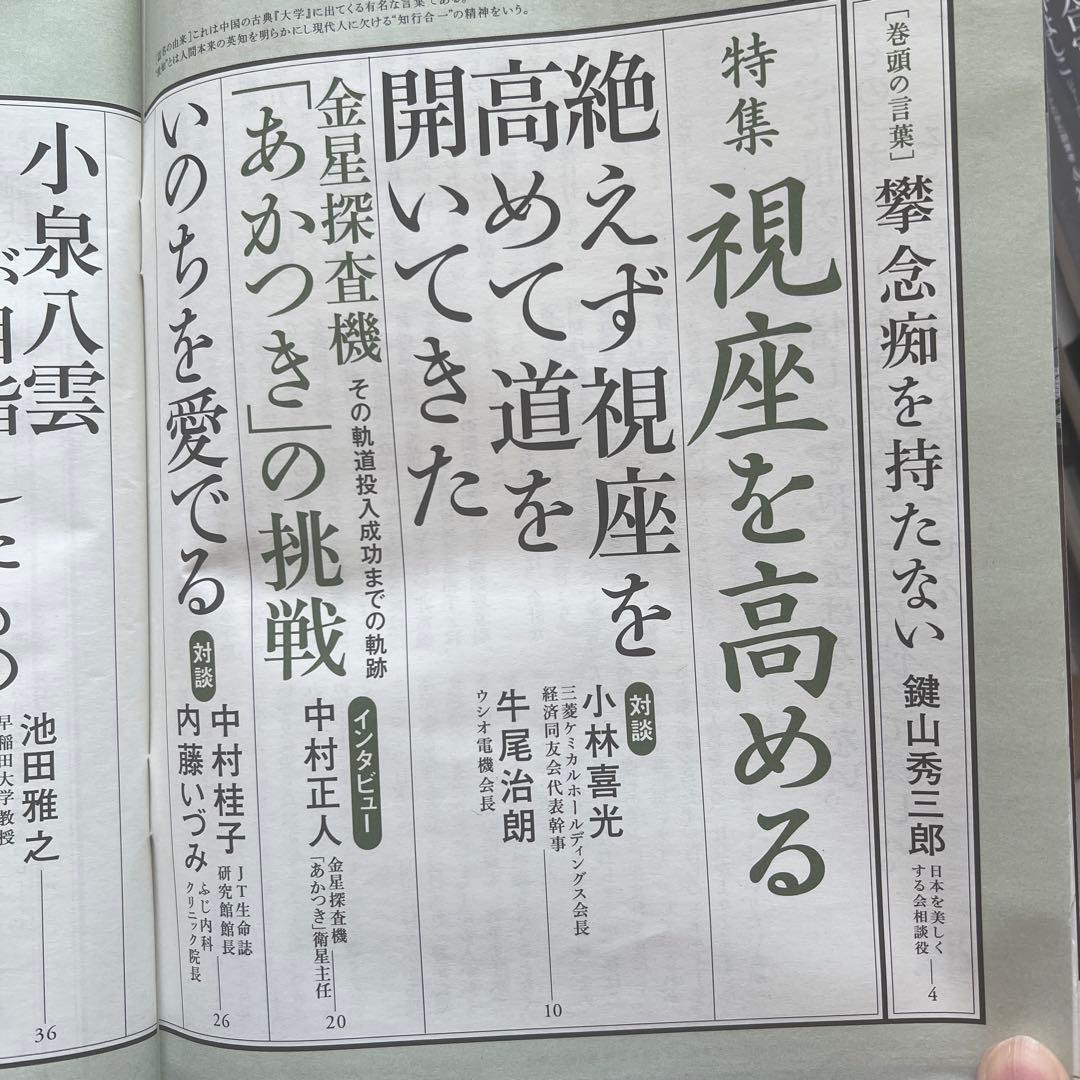 これは中国の古典『大学』に出てくる有名な言葉である。
とは人間本来の英知を明らかにし現代人に欠ける“知行合一”の精神をいう。
［巻頭の言葉］攀念痴を持たない
鍵山秀三郎
日本を美しく
する会相談役
4
特集
視座を高める
絶えず視座を
高めて道を
開いてきた
対談
小林喜光
三菱ケミカルホールディングス会長
経済同友会代表幹事
牛尾治朗
ウシオ電機会長
10
金星探査機
「あかつき」の挑戦
その軌道投入成功までの軌跡
インタビュー
中村正人
金星探査機
「あかつき」衛星主任
20
いのちを愛でる
対談
中村桂子
JT生命誌
研究館館長
内藤いづみ
ふじ内科
クリニック院長
26
小泉八雲
が目指したもの
池田雅之
早稲田大学教授
36